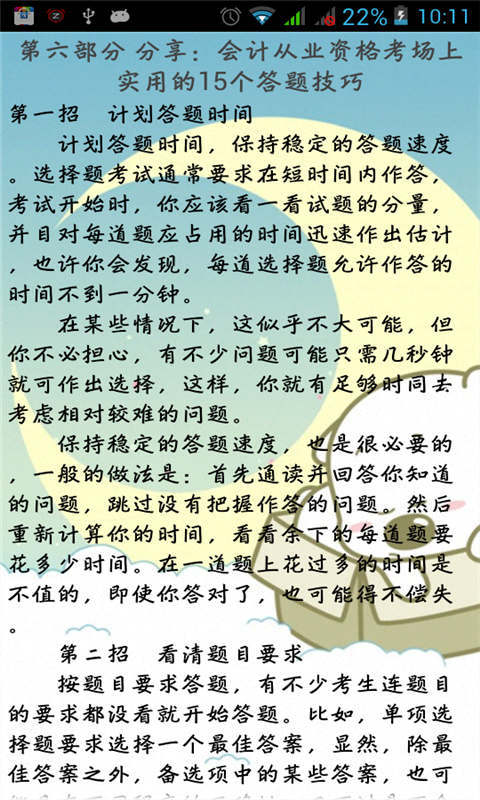 22% 10:11
第六部分 分享：会计从业资格考场上
实用的15个答题技巧
第一招　计划答题时间
计划答题时间，保持稳定的答题速度
。选择题考试通常要求在短时间内作答，
考试开始时，你应该看一看试题的分量，
并目对每道题应占用的时间迅速作出估计
，也许你会发现，每道选择题允许作答的
时间不到一分钟。
在某些情况下，这似乎不大可能，但
你不必担心，有不少问题可能只需几秒钟
就可作出选择，这样，你就有足够时同去
考虑相对较难的问题。
保持稳定的答题速度，也是很必要的
，一般的做法是：首先通读并回答你知道
的问题，跳过没有把握作答的问题。然后
重新计算你的时间，看看余下的每道题要
花多少时间。在一道题上花过多的时间是
不值的，即使你答对了，也可能得不偿失
。
第二招　看清题目要求
按题目要求答题，有不少考生连题目
的要求都没看就开始答题。比如，单项选
择题要求选择一个最佳答案，显然，除最
佳答案之外，备选项中的某些答案，也可